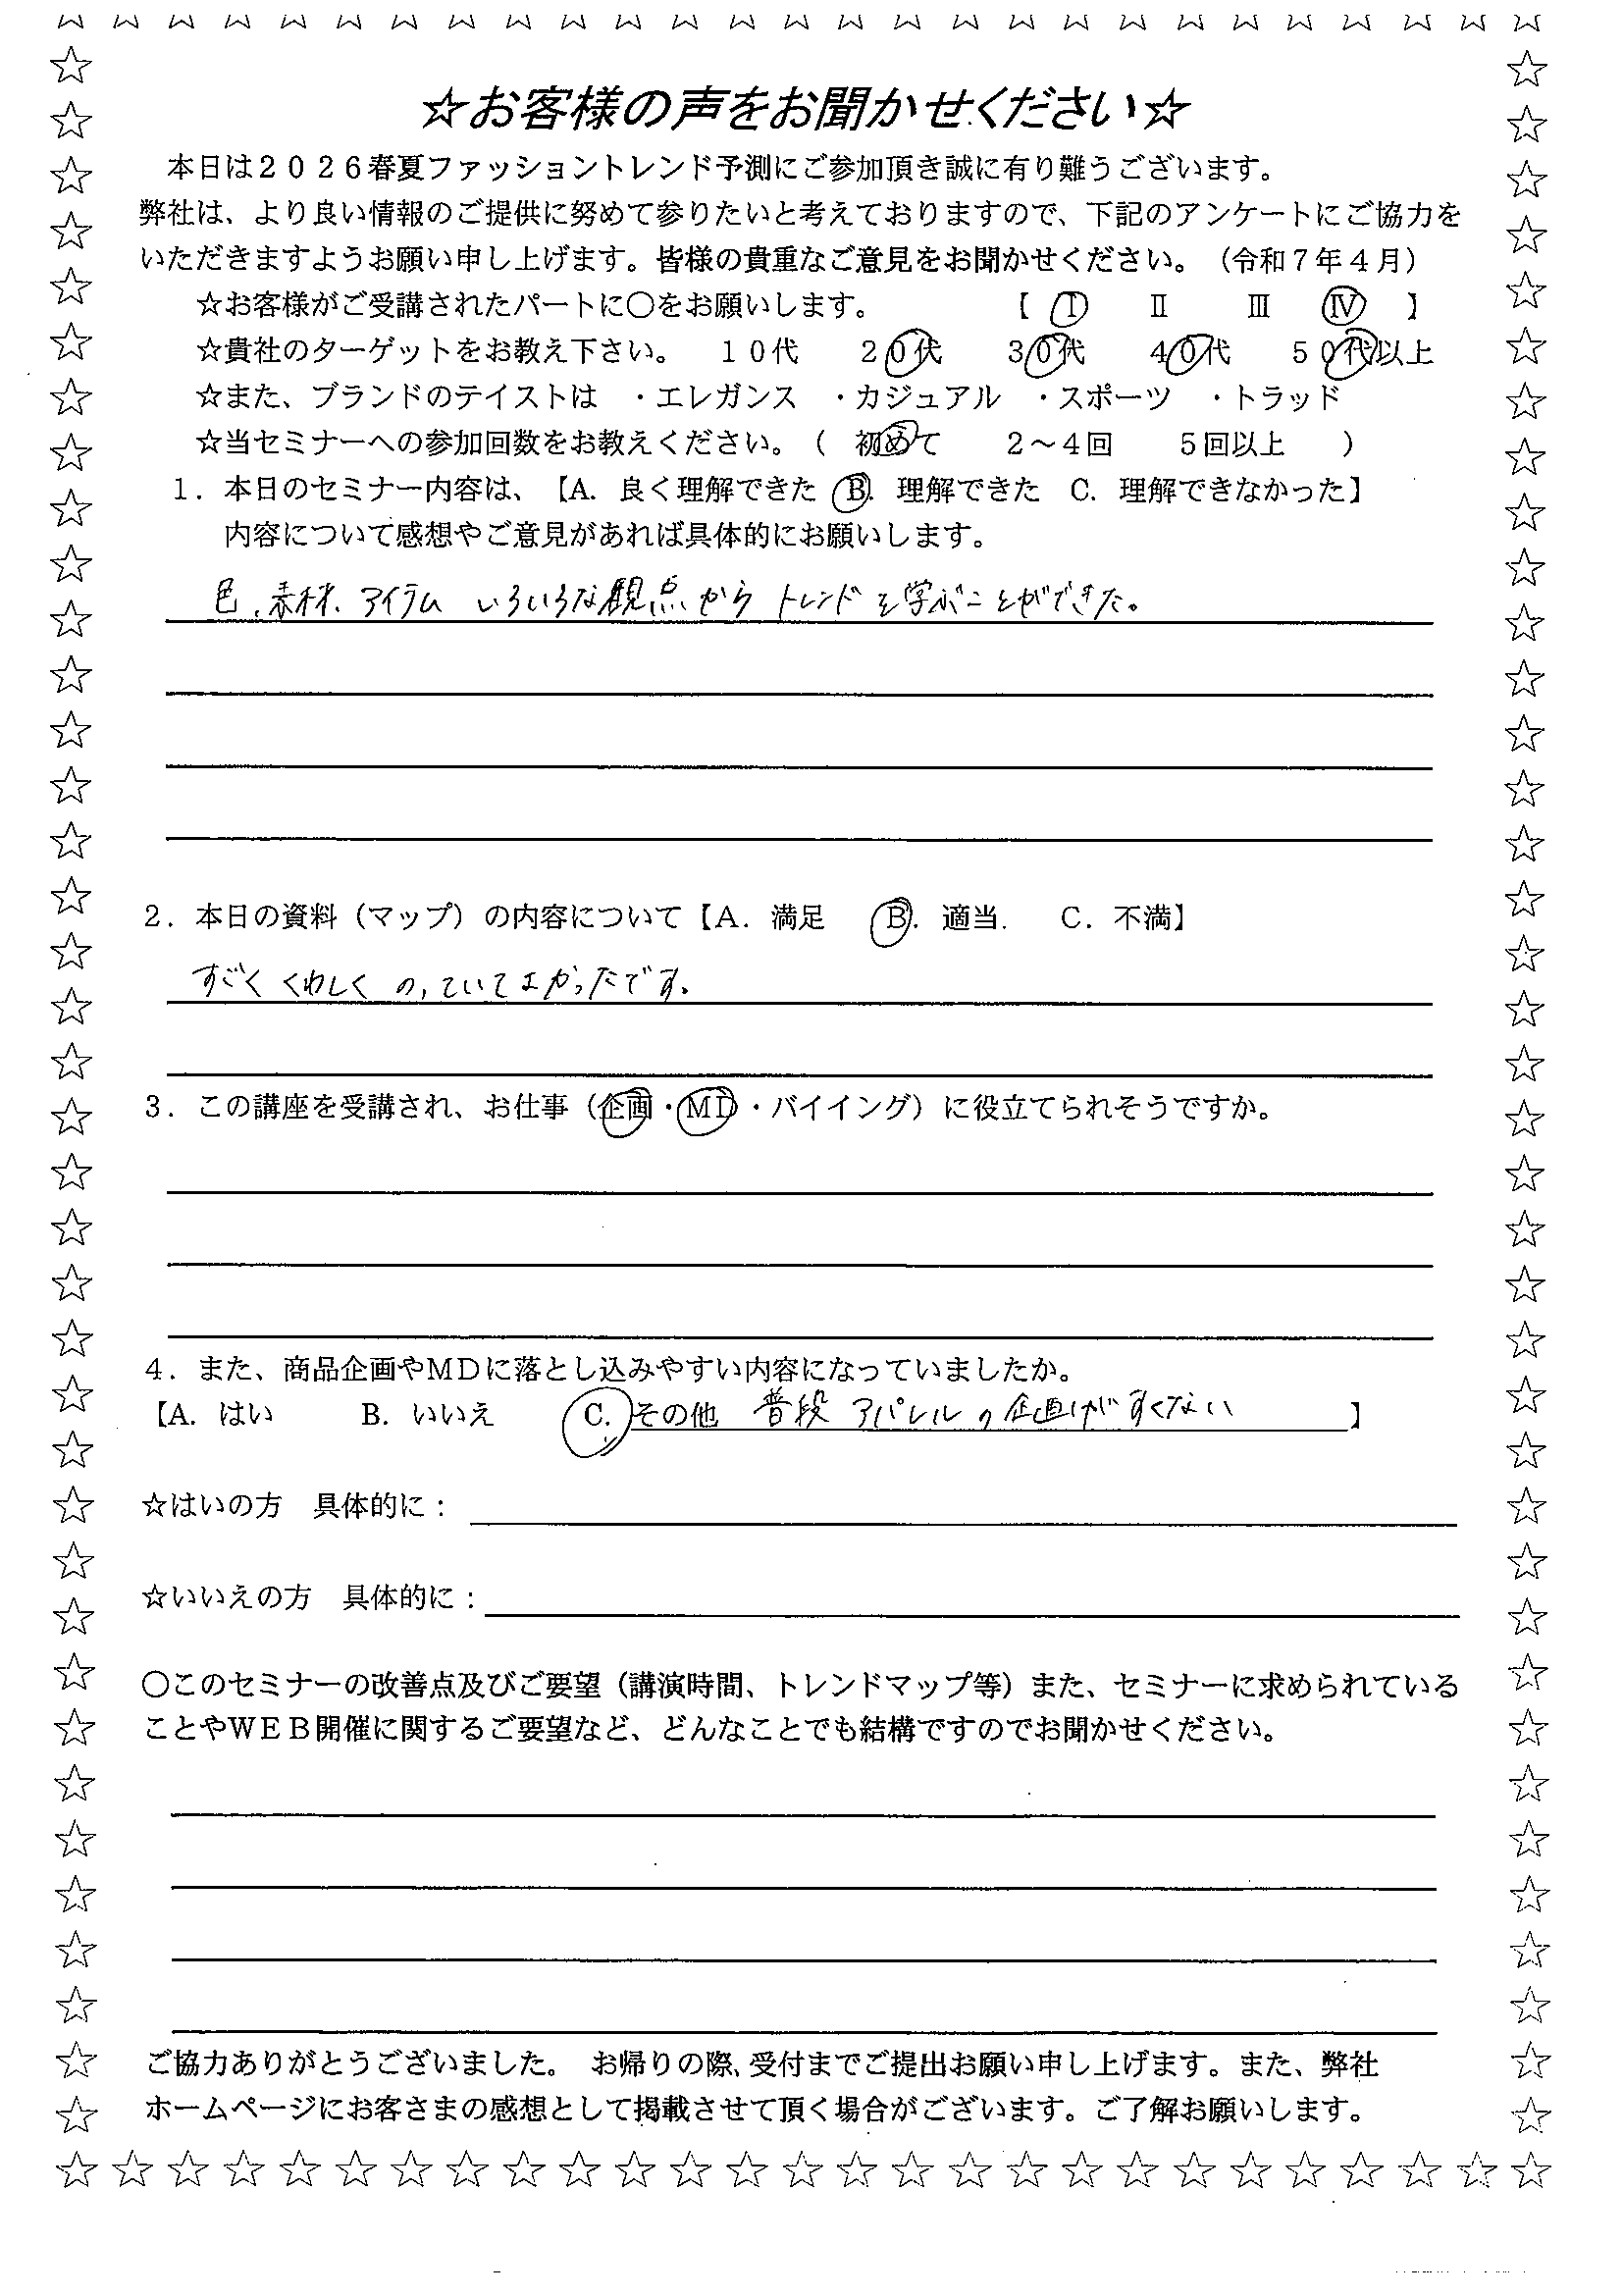 ☆お客様の声をお聞かせください☆
本日は２０２６春夏ファッショントレンド予測にご参加頂き誠に有り難うございます。
弊社は、より良い情報のご提供に努めて参りたいと考えておりますので、下記のアンケートにご協力を
いただきますようお願い申し上げます。皆様の貴重なご意見をお聞かせください。（令和７年４月）
☆お客様がご受講されたパートに〇をお願いします。 【 Ⅰ Ⅱ Ⅲ Ⅳ 】
☆貴社のターゲットをお教え下さい。 １０代 ２０代 ３０代 ４０代 ５０代以上
☆また、ブランドのテイストは ・エレガンス ・カジュアル ・スポーツ ・トラッド
☆当セミナーへの参加回数をお教えください。（ 初めて ２～４回 ５回以上 ）
１．本日のセミナー内容は、【A．良く理解できた B．理解できた C．理解できなかった】
内容について感想やご意見があれば具体的にお願いします。
色、素材、アイテム いろいろな観点から トレンドを学ぶことができた。
２．本日の資料（マップ）の内容について【A．満足 B．適当． C．不満】
すごく くわしく のっていてよかったです。
３．この講座を受講され、お仕事（企画・MD・バイイング）に役立てられそうですか。
４．また、商品企画やMDに落とし込みやすい内容になっていましたか。
【A．はい B．いいえ C．その他 普段 アパレルの企画はがすくない 】
☆はいの方 具体的に：
☆いいえの方 具体的に：
〇このセミナーの改善点及びご要望（講演時間、トレンドマップ等）また、セミナーに求められている
ことやＷＥＢ開催に関するご要望など、どんなことでも結構ですのでお聞かせください。
ご協力ありがとうございました。 お帰りの際、受付までご提出お願い申し上げます。また、弊社
ホームページにお客さまの感想として掲載させて頂く場合がございます。ご了解お願いします。